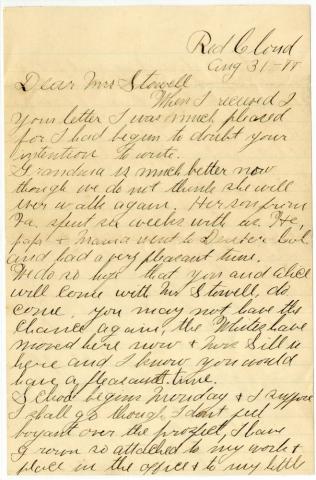 Red Cloud
Aug 31-88
Dear Mrs Stowell
When I received
Your letter I was much pleased
for I had begun to doubt your
intention to write.
Grandma is much better now
though we do not think she will
ever walk again. Her son from
Va. spent six weeks with us. He,
papa & Mama went to Denver Col.
and had a very pleasant time.
We do so hope that you and Alice
will come with Mr Stowell, do
come, you may not have this
chance again, the Whites have
moved here now & Mrs Sill is
here and I know you would
have a pleasant time.
School begins Monday & I suppose
I shall go though I don't feel
boyant over the prospect, I have
grown so attached to my work &
place in the office & to my little